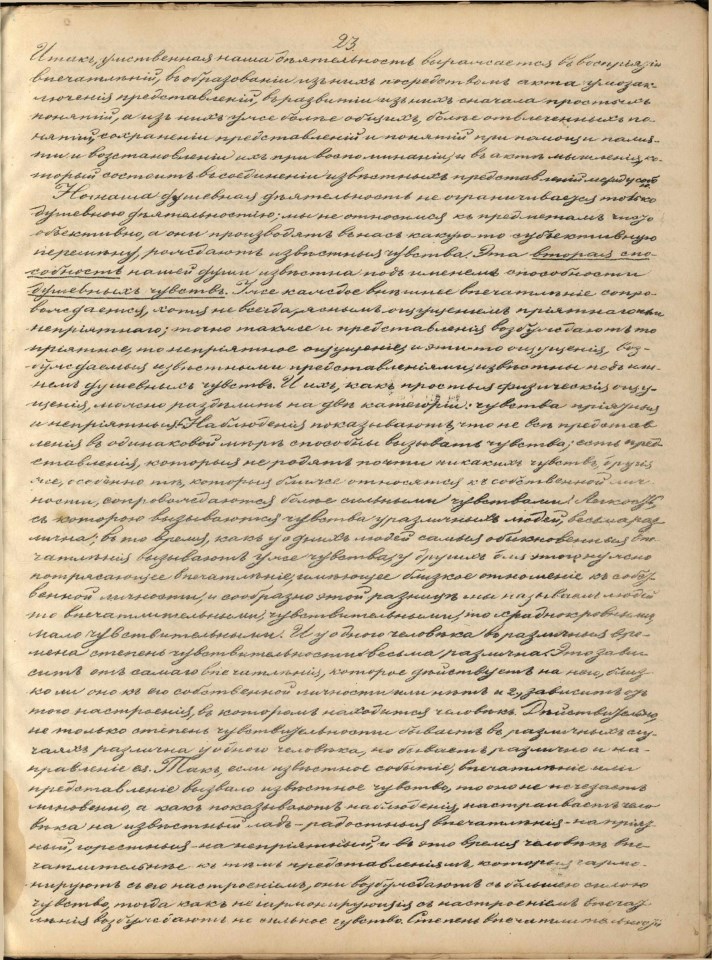 23.
Итакъ, умственная наша дѣятельность выражается въ воспріятіи
впечатлѣній, въ образованіи изъ нихъ посредствомъ акта умозак-
люченія представленій, въ развитіи изъ нихъ сначала простыхъ
понятій, а изъ нихъ уже болѣе общихъ, болѣе отвлеченныхъ по-
нятій, сохраненіи представленій и понятій при помощи памя-
ти и возстановленіи ихъ при воспоминаніи, и въ актѣ мышленія, ко-
торый состоитъ въ соединеніи извѣстныхъ представленій между собою.
Но наша душевная дѣятельность не ограничивается только
душевною дѣятельностію; мы не относимся къ предметамъ чисто
объективно, а они производятъ въ насъ какую то субъективную
перемѣну, рождаютъ извѣстныя чувства. Эта вторая спо-
собность нашей души извѣстна подъ именемъ способности
душевныхъ чувствъ. Уже каждое внѣшнее впечатлѣніе сопро-
вождается, хотя не всегда, яснымъ ощущеніемъ пріятнаго или
непріятнаго; точно также и представленія возбуждаютъ то
пріятное, то непріятное ощущеніе, и эти-то ощущенія, воз-
буждаемыя извѣстными представленіями, извѣстны подъ име-
немъ душевныхъ чувствъ. И ихъ, какъ простыя физическія ощу-
щенія, можно раздѣлить на двѣ категоріи: чувства пріятныя
и непріятныя. Наблюденія показываютъ, что не всѣ представ-
ленія въ одинаковой мѣрѣ способны вызывать чувства; есть пред-
ставленія, которыя не родятъ почти никакихъ чувствъ, другія
же, особенно тѣ, которыя ближе относятся къ собственной лич-
ности, сопровождаются болѣе сильными чувствами. Легкость,
съ которою вызываются чувства у различныхъ людей, весьма раз-
лична; въ то время, какъ у однихъ людей самыя обыкновенныя впе-
чатлѣнія вызываютъ уже чувства, у другихъ для этого нужно
потрясающее впечатлѣніе, имѣющее близкое отношеніе къ собст-
венной личности, и сообразно этой разницѣ мы называемъ людей
то впечатлительными, чувствительными, то хладнокровными,
мало чувствительными. И у одного человѣка въ различныя вре-
мена степень чувствительности весьма различна. Это зави-
ситъ отъ самаго впечатлѣнія, которое дѣйствуетъ на него, близ-
ко ли оно къ его собственной личности или нѣтъ и 2, зависитъ отъ
того настроенія, въ которомъ находится человѣкъ. Дѣйствительно,
не только степень чувствительности бываетъ въ различныхъ слу-
чаяхъ различна у одного человѣка, но бываетъ различно и на-
правленіе ея. Такъ, если извѣстное событіе, впечатлѣніе или
представленіе вызвало извѣстное чувство, то оно не исчезаетъ
мгновенно, а какъ показываютъ наблюденія, настраиваетъ чело-
вѣка на извѣстный ладъ – радостныя впечатлѣнія – на пріят-
ный, горестныя – на непріятный, и въ это время человѣкъ впе-
чатлительнѣе къ тѣмъ представленіямъ, которыя гармо-
нируютъ съ его настроеніемъ, они возбуждаютъ съ большею силою
чувство, тогда какъ не гармонирующія съ настроеніемъ впечат-
лѣнія возбуждаютъ не сильное чувство. Степень впечатлительности